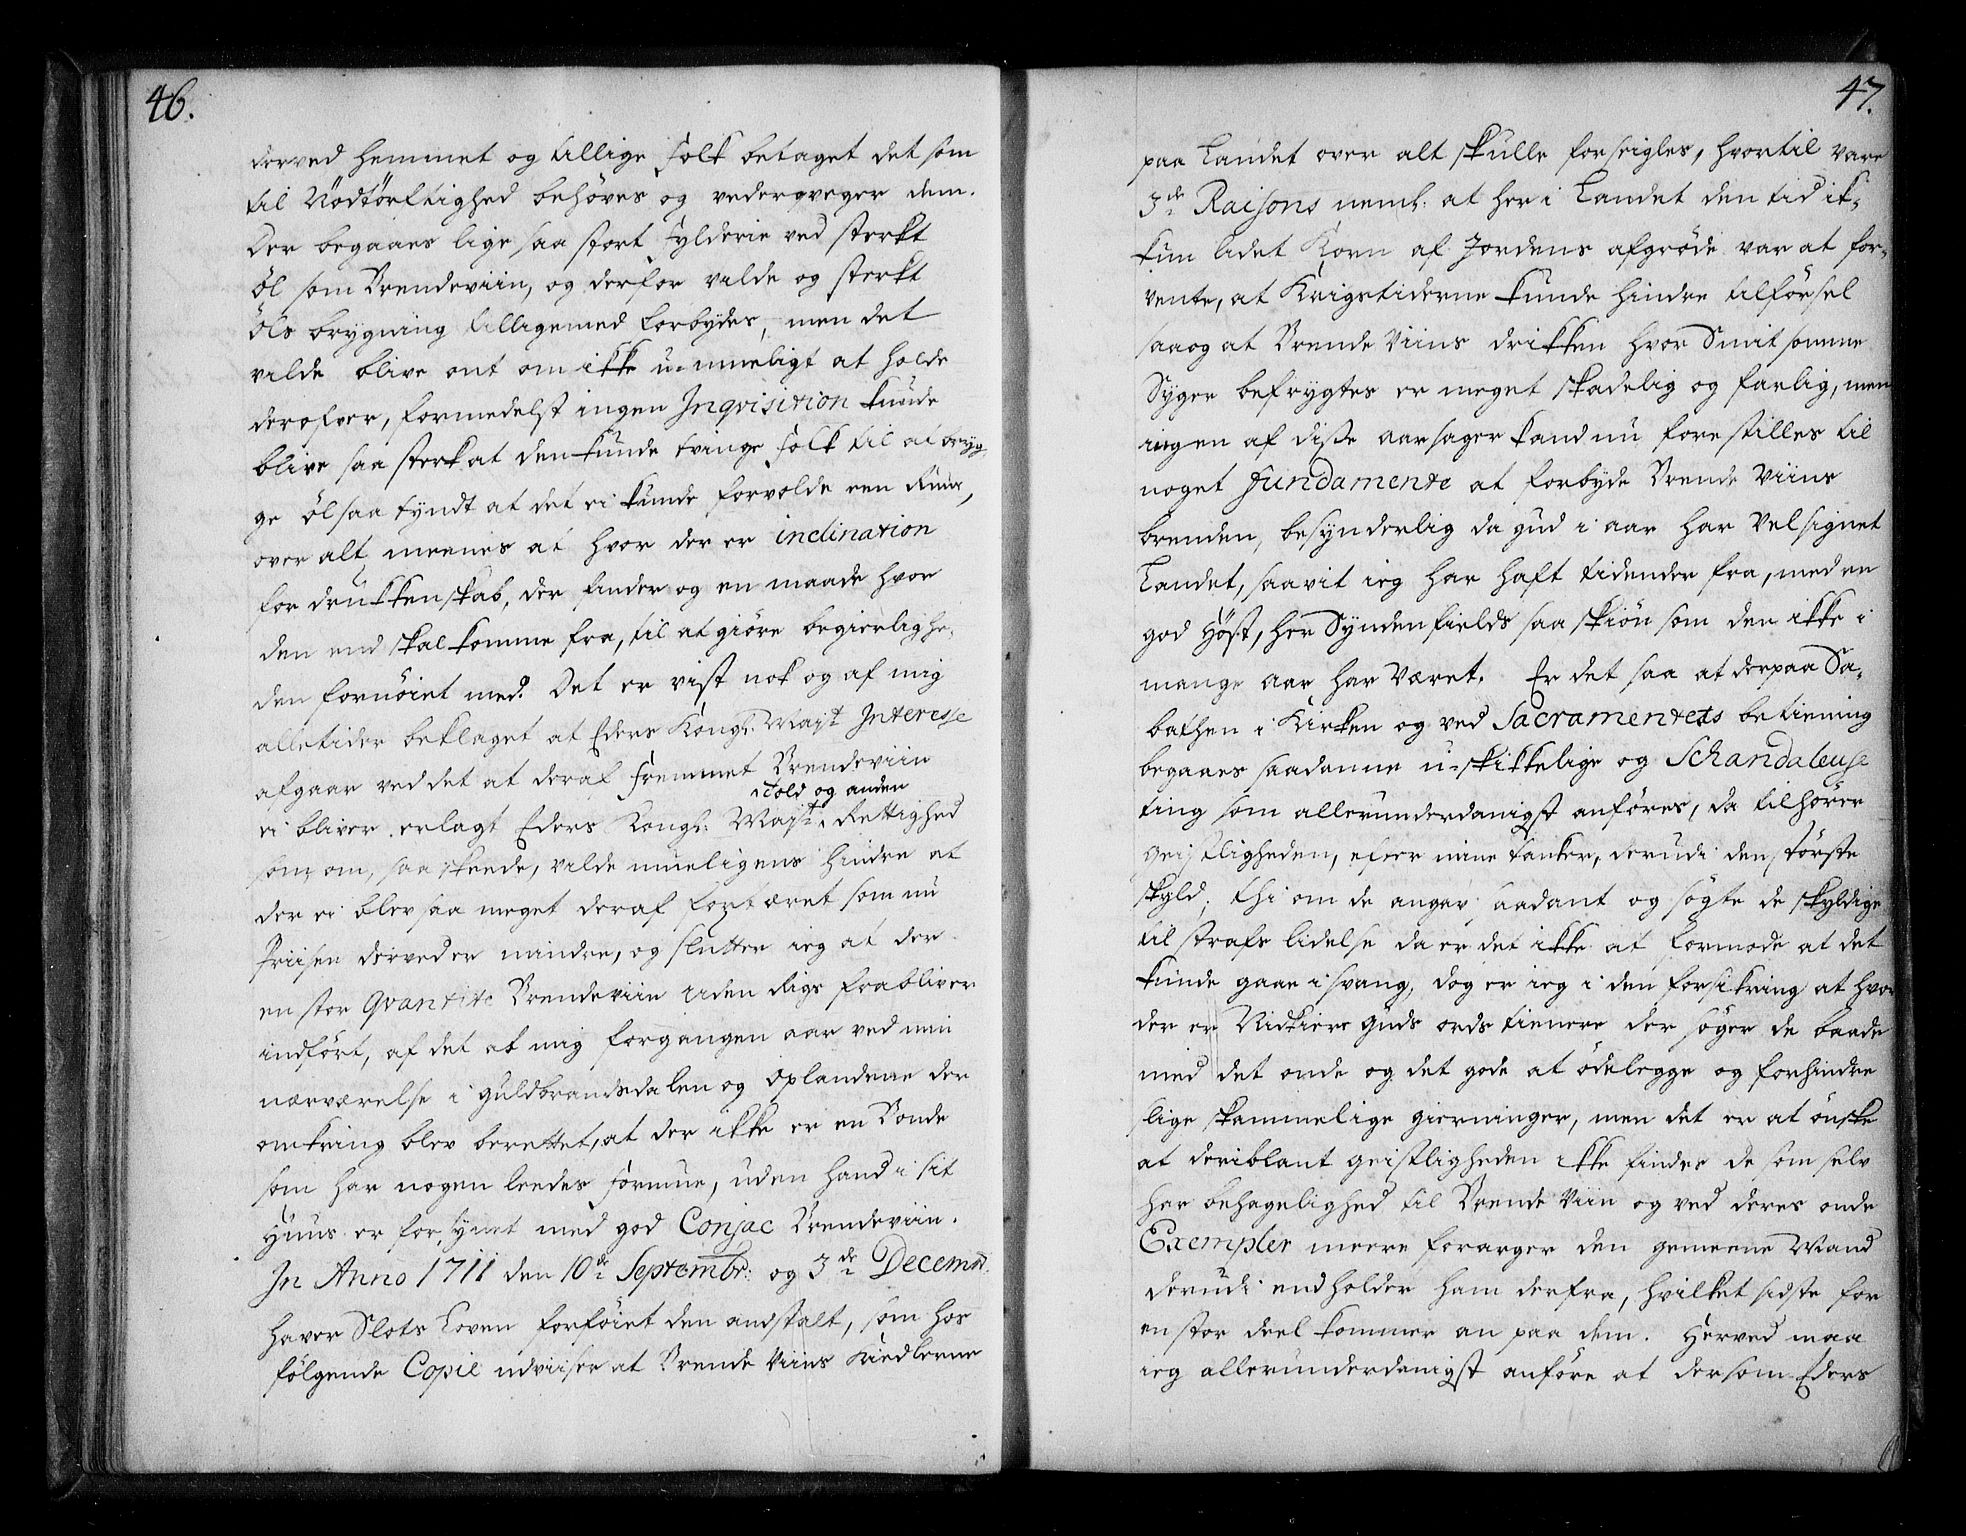 46.
derved hemmet og tillige folk betaget det som
til Nödtörftighed behöves og vederqveger dem.
Der begaaes lige saa stort fylderie ved sterkt
Öl som Brendeviin, og derfor vilde og sterkt
Öls brygning tilligemed forbydes, men det
vilde blive ont om ikke u-mueligt at holde
derofver, formedelst ingen Inqvisition kunde
blive saa sterk at den kunde tvinge folk til at bryg-
ge Öl saa tyndt at det ei kunde forvolde een Ruus,
over alt meenes at hvor der er inclination
for drukkenskab, der finder og en maade hvor
den end skal komme fra, til at giöre begierlighe-
den fornöiet med. Det er vist nok og af mig
alletider beklaget at Eders Kongl. Mayst Interesse
afgaar ved det at deraf fremmet Brendeviin
Told og anden
ei bliver erlagt Eders Kongl: Mayst: Rettighed
som om, saa skeede, vilde mueligens hindre at
der ei blev saa meget deraf fortæret som nu
Priisen derved er mindre, og slutter ieg at der
en stor Qvantite Brendeviin uden Rigs fra bliver
indfört, af det at mig forgangen aar ved min
nærværelse i Guldbrandsdalen og Oplandene der
omkring blev berettet, at der ikke er en Bonde
som har nogenleedes formue, uden hand i sit
Huus er forsynet med god Conjac Brendeviin.
In Anno 1711 den 10de Septembr: og 3de Decembr.
haver Slots Loven forföiet den andstalt, som hos
fölgende Copie udviiser at Brende Viins Kiedlerne
47.
paa Landet over alt skulle forseigles, hvortil vare
3de Raisons neml: at her i Landet den tid ik-
kun lidet Korn af Jordens afgröde var at for-
vente, at Krigstiderne kunde hindre tilförsel
saa og at Brende Viins drikken hvor Smitsomme
Syger befrygtes er meget skadelig og farlig, men
ingen af disse aarsager kand nu forestilles til
noget Fundamente at forbyde Brende Viins
brenden, besynderlig da Gud i aar har Velsignet
Landet, saavit ieg har haft tidender fra, med en
god Höst, her Syndenfields saa skiön som den ikke i
mange aar har Været. Er det saa at der paa Sa-
bathen i Kirken og ved Sacramentets betiening
begaaes saadanne u-skikkelige og Schandaleuse
ting som allerunderdanigst anföres, da tilhörer
Geistligheden, efter mine tanker, derudi den störste
skyld; thi om de angav saadant og sögte de skyldige
til strafs lidelse da er det ikke at formode at det
kunde gaae i svang, dog er ieg i den forsikring at hvor
der er Nidkiere Guds ords tienere der söger de baade
med det onde og det gode at ödelegge og forhindre
slige skammelige gierninger, men det er at önske
at deriblant Geistligheden ikke findes de som selv
har behagelighed til Brende Viin og ved deres onde
Exempler meere forarger den gemeene Mand
derudi end holder ham derfra, hvilket sidste for
en stor deel kommer an paa dem. Herved maa
ieg allerunderdanigst anföre at dersom Eders